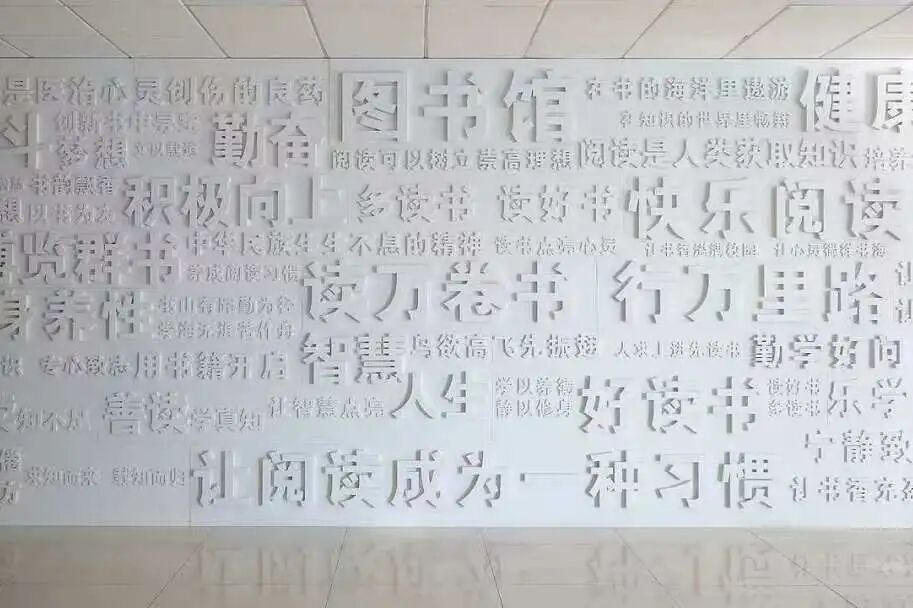 是医治心灵创伤的良药
图书馆
在书的海洋里遨游
健康
在知识的世界里畅翔
斗
梦想
勤奋
阅读可以树立崇高理想
阅读是人类获取知识
培养
积极向上
多读书
读好书
快乐阅读
想
以书为友
博览群书
中华民族生生不息的精神
读书点亮心灵
让书香溢满校园
养成阅读习惯
读万卷书
行万里路
身养性
书山有路勤为径
学海无涯苦作舟
智慧
鸟欲高飞先振翅
人求上进先读书
勤学好问
专心致志
用书籍开启
人生
学以养德
静以修身
好读书
读好书
多读书
乐学
善读
学真知
让智慧点亮
宁静致
求知而来
载知而归
让阅读成为一种习惯
让书香充